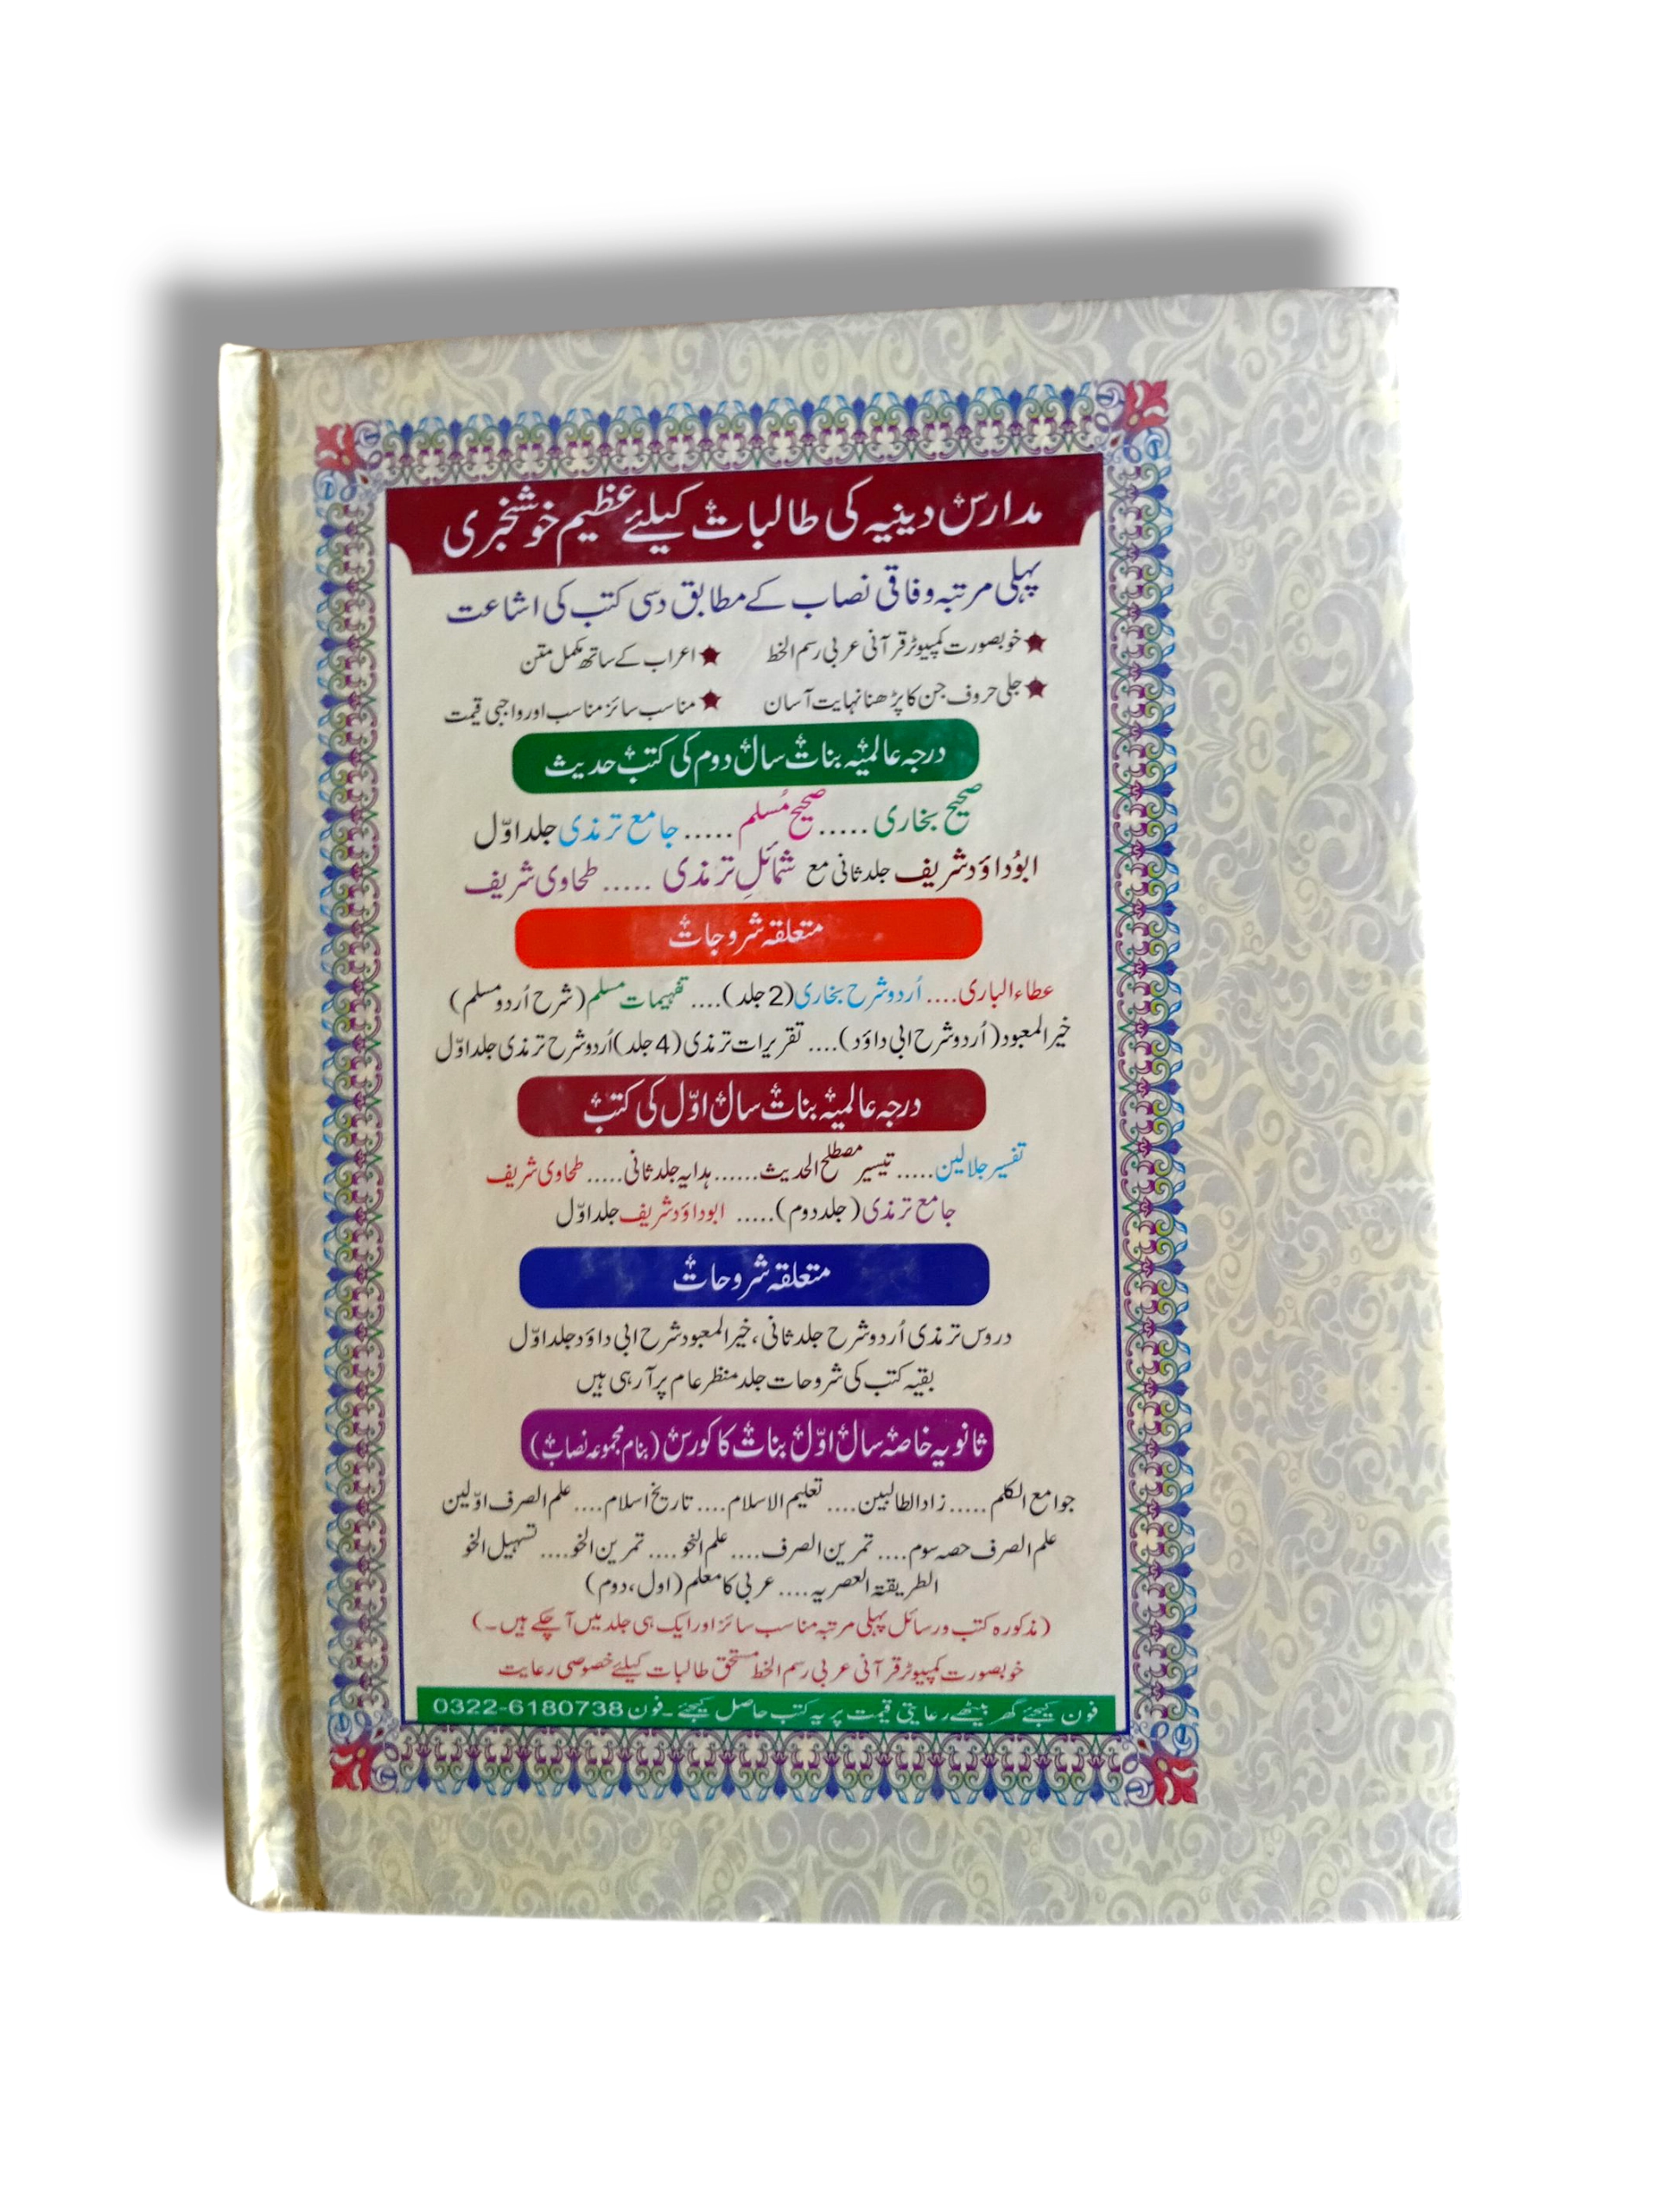 مدارس دینیہ کی طالبات کیلئے عظیم خوشخبری
پہلی مرتبہ وفاقی نصاب کے مطابق دسی کتب کی اشاعت
★ خوبصورت کمپیوٹر قرآنی عربی رسم الخط ★ اعراب کے ساتھ مکمل متن
★ جلی حروف جن کا پڑھنا نہایت آسان ★ مناسب سائز مناسب اور واجبی قیمت
درجہ عالمیہ بنات سال دوم کی کتب حدیث
صحیح بخاری ..... صحیح مُسلم ..... جامع ترمذی جلد اوّل
ابوُداؤد شریف جلد ثانی مع شمائلِ ترمذی ..... طحاوی شریف
متعلقہ شروحات
عطاء الباری .... اُردو شرح بخاری (2 جلد) .... تفہیمات مسلم (شرح اُردو مسلم)
خیر المعبود (اُردو شرح ابی داؤد) .... تقریرات ترمذی (4 جلد) اُردو شرح ترمذی جلد اوّل
درجہ عالمیہ بنات سال اوّل کی کتب
تفسیر جلالین ..... تیسیر مصطلح الحدیث ...... ہدایہ جلد ثانی ..... طحاوی شریف
جامع ترمذی (جلد دوم) ..... ابوداؤد شریف جلد اوّل
متعلقہ شروحات
دروس ترمذی اُردو شرح جلد ثانی، خیر المعبود شرح ابی داؤد جلد اوّل
بقیہ کتب کی شروحات جلد منظر عام پر آرہی ہیں
ثانویہ خاصہ سال اوّل بنات کا کورس (بنام مجموعہ نصاب)
جوامع الکلم ..... زاد الطالبین .... تعلیم الاسلام .... تاریخ اسلام .... علم الصرف اوّلین
علم الصرف حصہ سوم .... تمرین الصرف .... علم النحو .... تمرین النحو .... تسہیل النحو
الطریقۃ العصریہ .... عربی کا معلم (اول، دوم)
(مذکورہ کتب و رسائل پہلی مرتبہ مناسب سائز اور ایک ہی جلد میں آچکے ہیں۔)
خوبصورت کمپیوٹر قرآنی عربی رسم الخط مستحق طالبات کیلئے خصوصی رعایت
فون کیجئے گھر بیٹھے رعایتی قیمت پر یہ کتب حاصل کیجئے۔ فون 0322-6180738